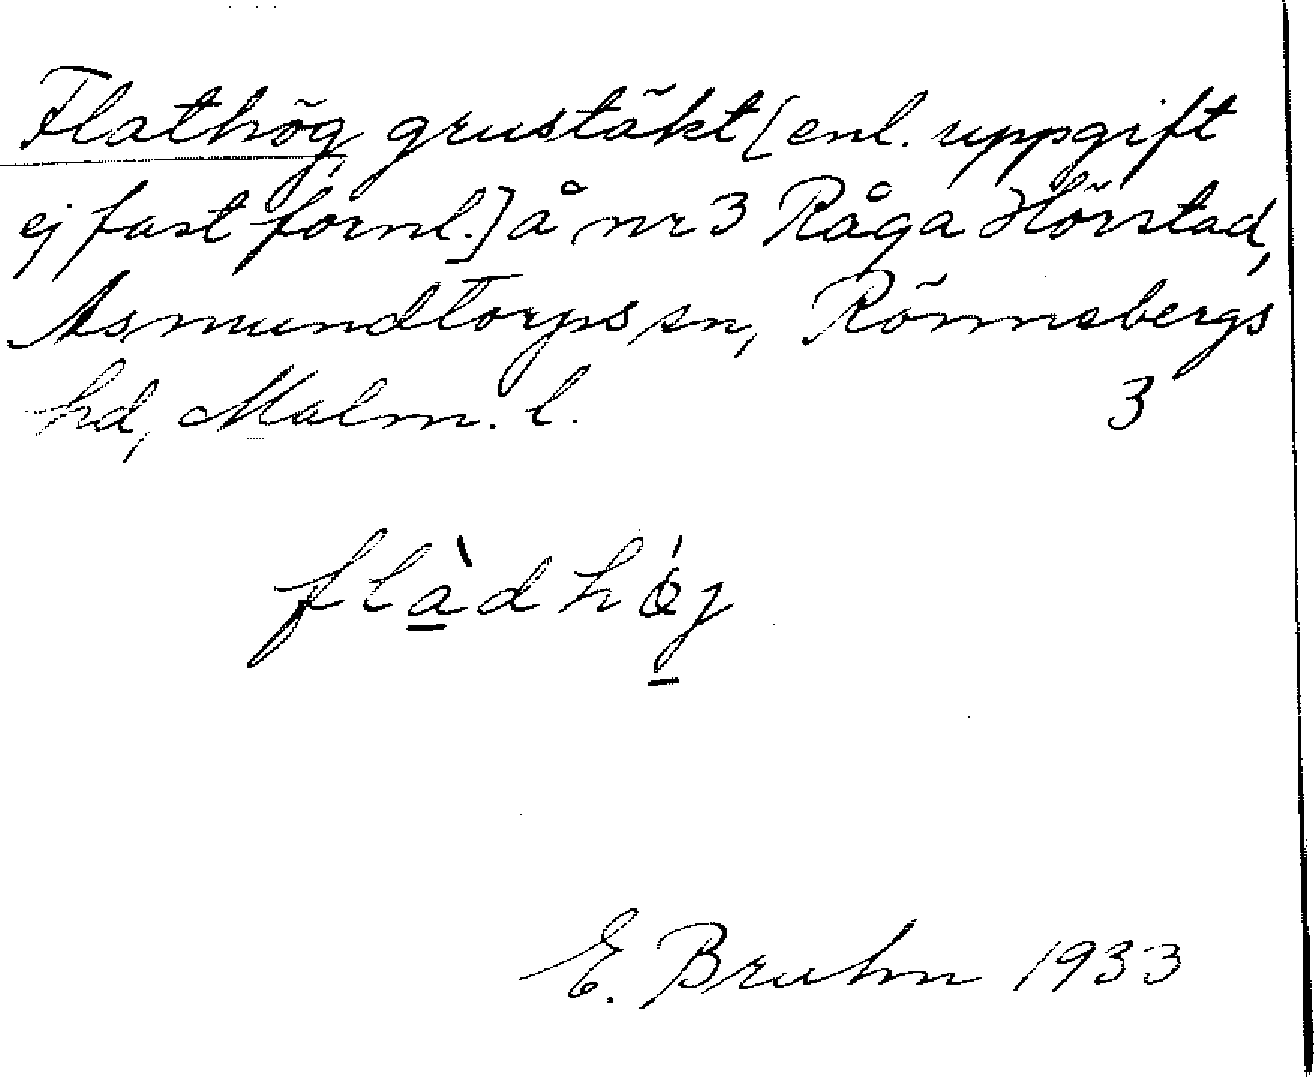 Flathög grustäkt [enl. uppgift
ej fast fornl.] å nr 3 Råga Hörstad,
Asmundtorps sn, Rönnebergs
hd, Malm. l. 3
flàdhǿj
E. Bruhn 1933